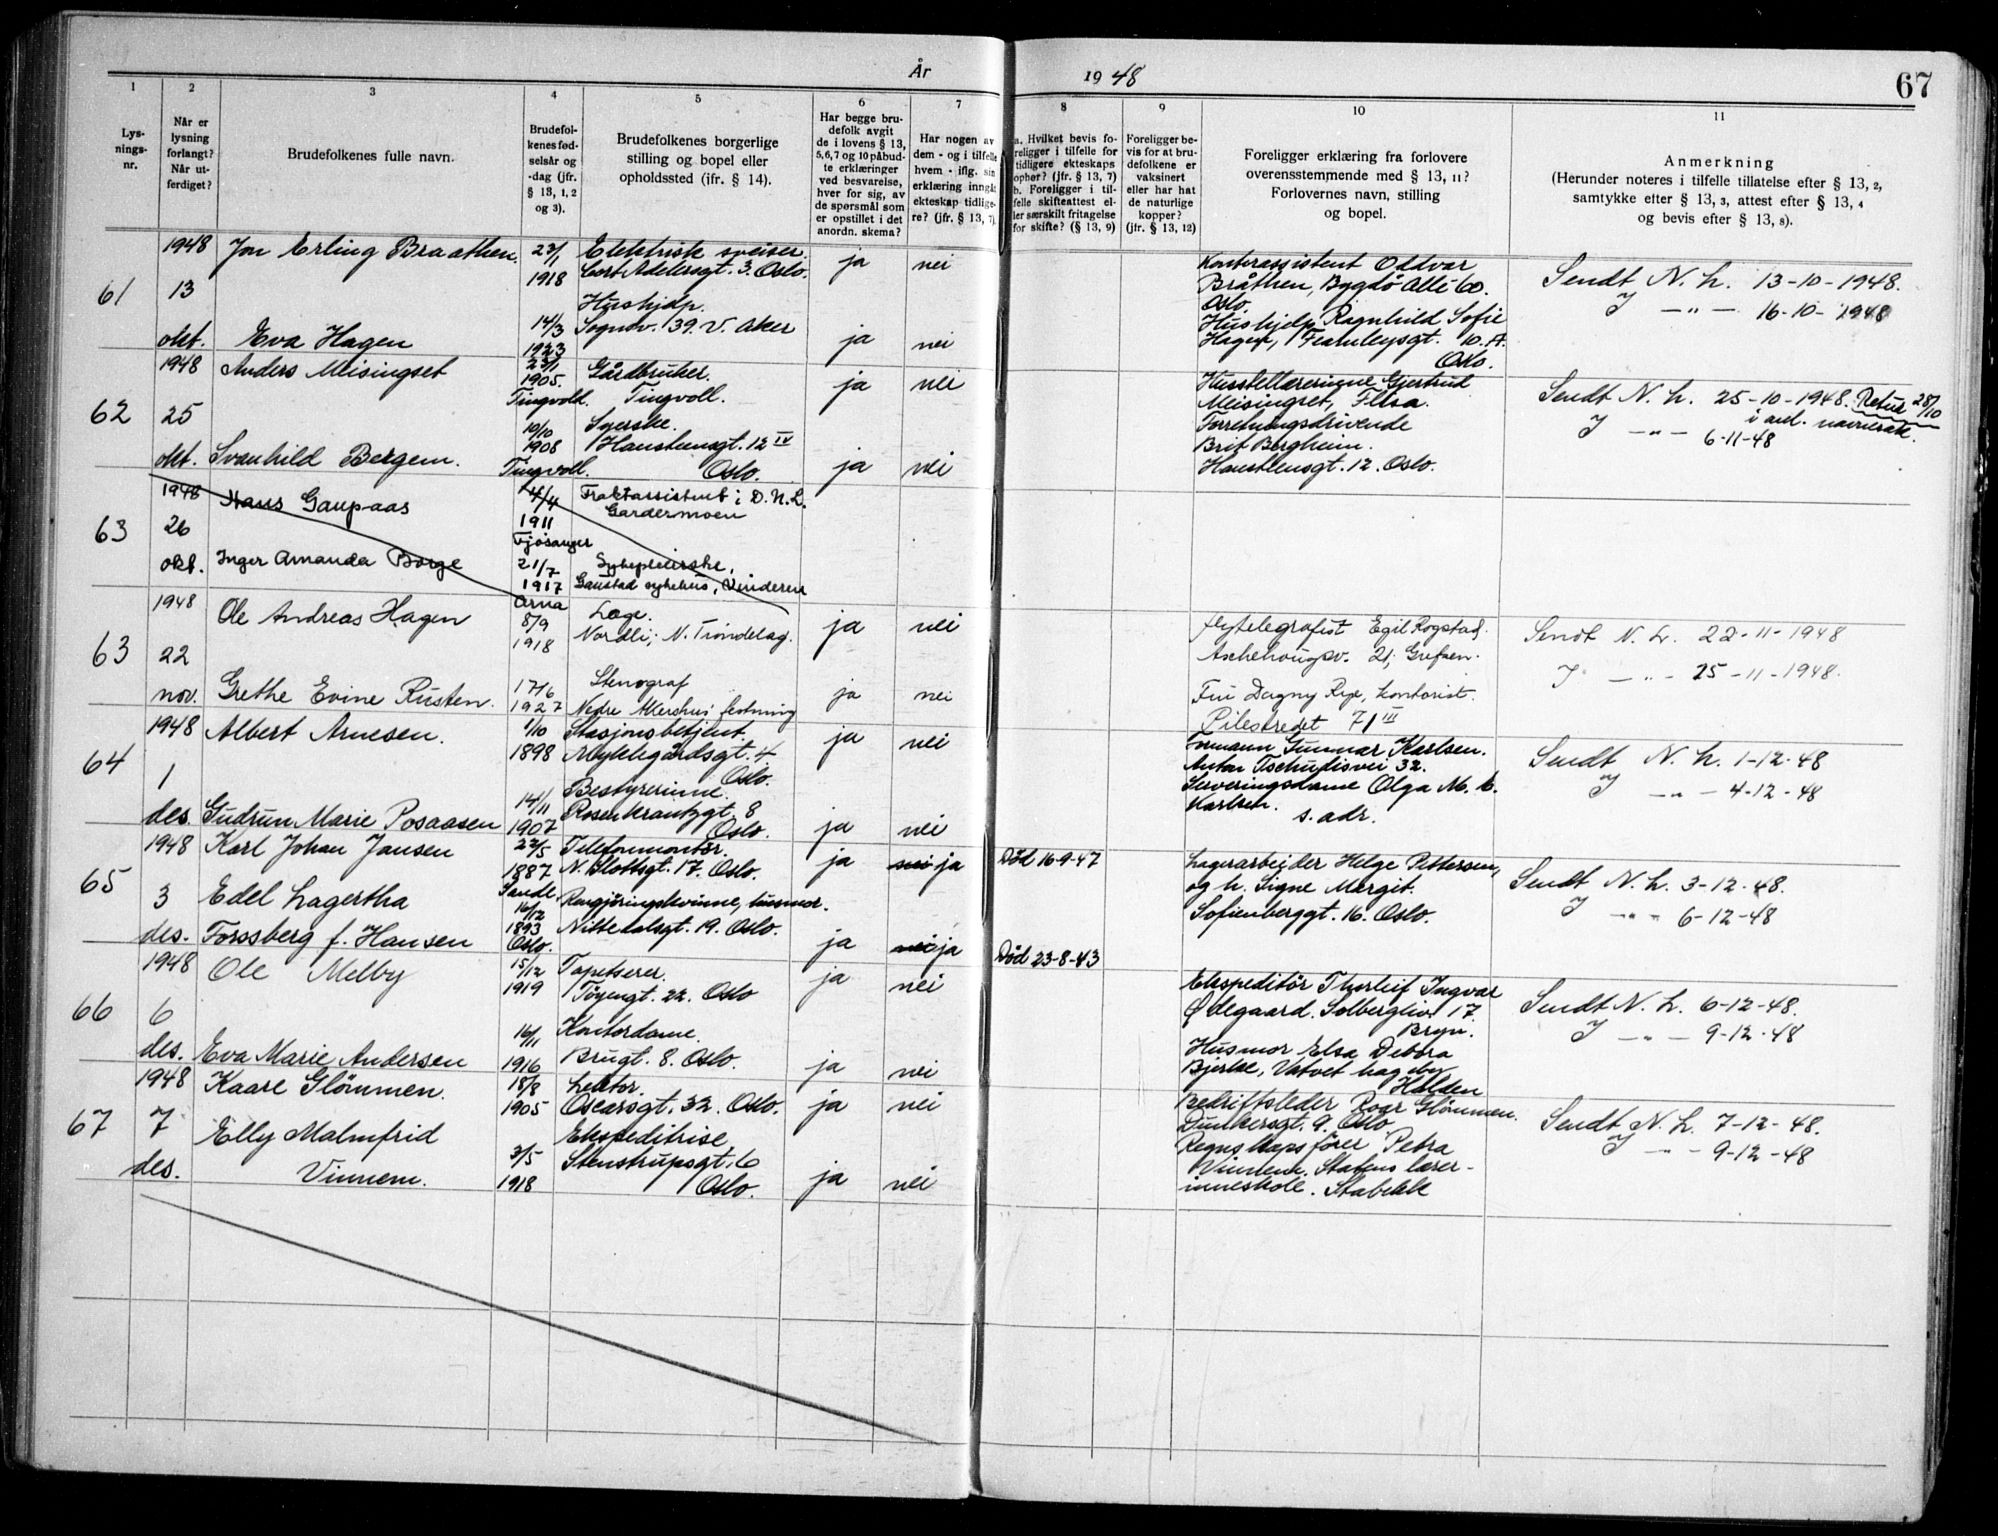 År
19 48
67
1
2
3
4
5
6
7
8
9
10
11
Lys-
nings-
nr.
Når er
lysning
forlangt?
Når ut-
ferdiget?
Brudefolkenes fulle navn.
Brudefol-
kenes fød-
selsår og
-dag (jfr.
§ 13, 1, 2
og 3).
Brudefolkenes borgerlige
stilling og bopel eller
opholdssted (ifr. § 14).
Har begge bru-
defolk avgit
de i lovens § 13,
5, 6, 7 og 10 påbud-
te erklæringer
ved besvarelse,
hver for sig, av
de spørsmål som
er opstillet i det
anordn. skema?
Har nogen av
dem - og i tilfelle
hvem - iflg. sin
erklæring inngått
ekteskap tidlige-
re? (jfr. § 13, 7).
a. Hvilket bevis fo-
religger i tilfelle for
tidligere ekteskaps
ophør? (jfr. § 13, 7)
b. Foreligger i til-
felle skifteattest el-
ler særskilt fritagelse
for skifte? (§ 13, 9)
Foreligger be-
vis for at bru-
defolkene er
vaksinert
eller har hat
de naturlige
kopper?
(jfr. § 13, 12)
Foreligger erklæring fra forlovere
overensstemmende med § 13, 11?
Forlovernes navn, stilling
og bopel.
Anmerkning
(Herunder noteres i tilfelle tillatelse efter § 13, 2,
samtykke efter § 13, 3, attest efter § 13, 4
og bevis efter § 13, 8).
61
1948
13
okt.
Jon Erling Braathen.
23/1
1918
Elektrisk sveiser.
Cort Adelersgt. 3. Oslo.
ja
nei
Eva Hagen
14/3
1923
Hushjelp.
Sognsv. 39. V. Aker
ja
nei
Kontorassistent Oddvar
Bråthen, Bygdö Allé 60.
Oslo.
Hushjelp Ragnhild Sofie
Hagen, Fearnleysgt. 10. A.
Oslo.
Sendt N. L. 13-10-1948.
J — " — 16-10-1948
62
1948
25
okt.
Anders Meisingset
23/1
1905.
Tingvold.
Gårdbruker.
Tingvoll.
ja
nei
Svanhild Bergem.
10/10
1908
Tingvoll.
Syerske.
Hausteensgt. 12 IV
Oslo.
ja
nei
Husstellærerinne Gjertrud
Meisingset, Elsa.
Forretningsdrivende
Brit Bergheim.
Hausteensgt. 12. Oslo.
Sendt N. L. 25-10-1948. Retur 28/10
i anl. navnesak.
J — " — 6-11-48
63
1948
26
okt.
Hans Gaupaas
4/4
1911
Fjøsanger
Fraktassistent i D. N. L.
Gardermoen
Inger Amanda Borge
21/7
1917
Arna
Sykepleierske,
Gaustad sykehus, Vinderen
63
1948
22
nov.
Ole Andreas Hagen
8/9
1918
Læge.
Nordli, N. Trøndelag.
ja
nei
Grethe Evine Rusten.
17/6
1927
Stenograf
Nedre Akershus festning
ja
nei
Flytelegrafist Egil Rogstad.
Aschehougsv. 21, Grefsen.
Fru Dagny Rye, kontorist.
Pilestredet 71 III
Sendt N. L. 22-11-1948
J — " — 25-11-1948.
64
1948
1
des.
Albert Arnesen.
1/10
1898
Stasjonsbetjent.
Myklegårdsgt. 4.
Oslo.
ja
nei
Gudrun Marie Posaasen
14/11
1907
Bestyrerinne.
Rosenkrantzgt 8
Oslo.
ja
nei
Formann Gunnar Karlsen.
Anton Tschudisvei 32.
Serveringsdame Olga M. K.
Karlsen.
s. adr.
Sendt N. L. 1-12-48
J — " — 4-12-48
65
1948
3
des.
Karl Johan Jansen
22/5
1887
Sande.
Telefonmontör.
N. Slottsgt. 17. Oslo.
ja
nei ja
Död 16-9-47
Edel Lagertha
Forssberg f. Hansen
16/12
1893
Oslo.
Rengjöringskvinne, husmor.
Nittedalsgt. 19. Oslo.
ja
nei ja
Död 23-8-43
Lagerarbeider Helge Pettersen,
og h. Signe Margit.
Sofienberggt. 16. Oslo.
Sendt N. L. 3-12-48.
J — " — 6-12-48
66
1948
6
des.
Ole Melby
15/12
1919
Tapetserer.
Töyengt. 22. Oslo
ja
nei
Eva Marie Andersen
16/1
1916
Kontordame.
Brugt. 8. Oslo.
ja
nei
Ekspeditör Thorleif Ingvar
Ødegaard. Solbergliv. 17.
Bryn.
Husmor Elsa Debora
Bjerke, Vatvet hageby
Halden
Sendt N. L. 6-12-48.
J — " — 9-12-48
67
1948
7
des.
Kaare Glömmen.
18/8
1905
Lektor.
Oscarsgt. 32. Oslo.
ja
nei
Elly Malmfrid
Vinnem.
3/5
1918
Ekspeditrise
Stenstrupsgt. 6
Oslo.
ja
nei
Bedriftsleder Roar Glömmen.
Dunkersgt. 9. Oslo
Regnskapsförer Petra
Vinnem. Statens lærer-
inneskole. Stabekk
Sendt N. L. 7-12-48.
J — " — 9-12-48